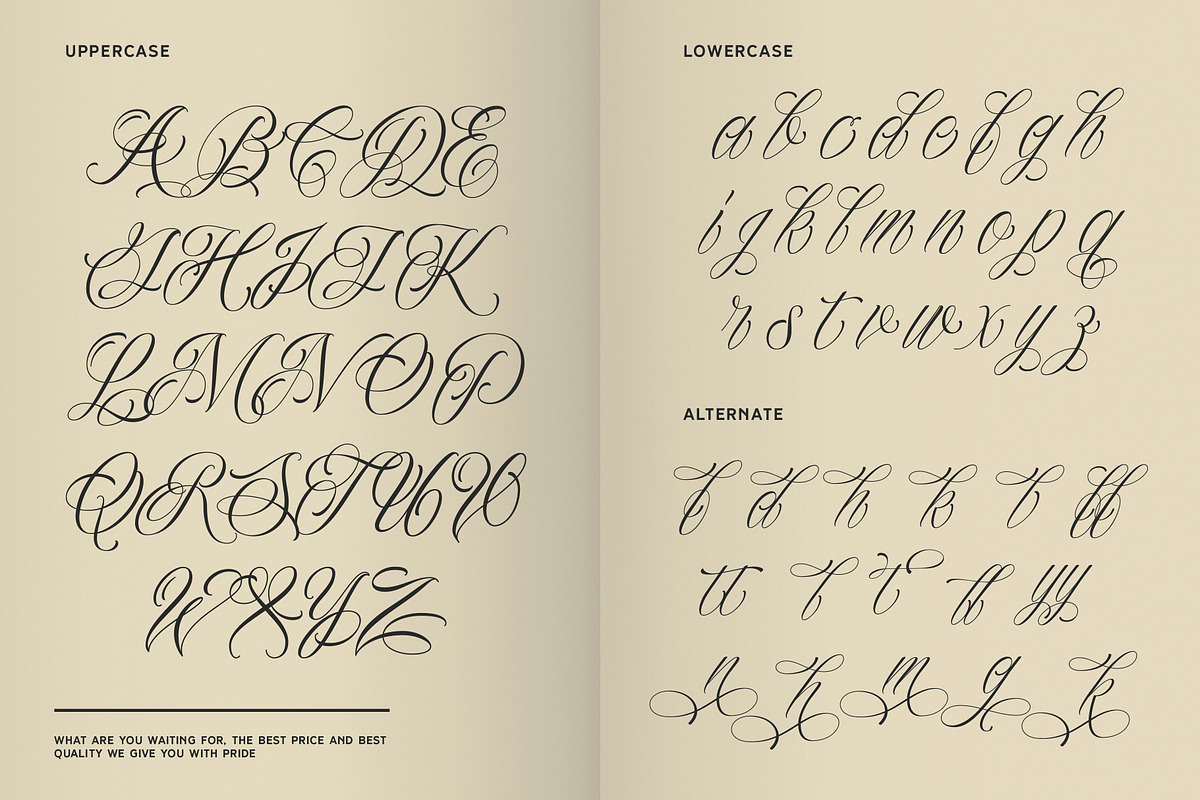 UPPERCASE
ABCDE
GHIJK
LMNOP
QRSTUV
WXYZ
WHAT ARE YOU WAITING FOR, THE BEST PRICE AND BEST
QUALITY WE GIVE YOU WITH PRIDE
LOWERCASE
abcdefgh
ijklmnopq
rstvwxyz
ALTERNATE
f d h k t ff
tt f t ff yy
n h m g k